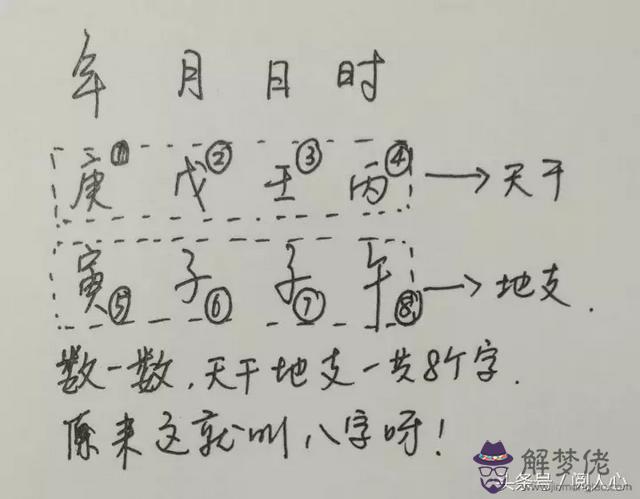 年 月 日 时
庚① 戊② 壬③ 丙④ → 天干
寅⑤ 子⑥ 子⑦ 午⑧ → 地支.
数一数,天干地支一共8个字.
原来这就叫八字呀!
解梦佬
www.jiemenglao.com
头条号/阅人心